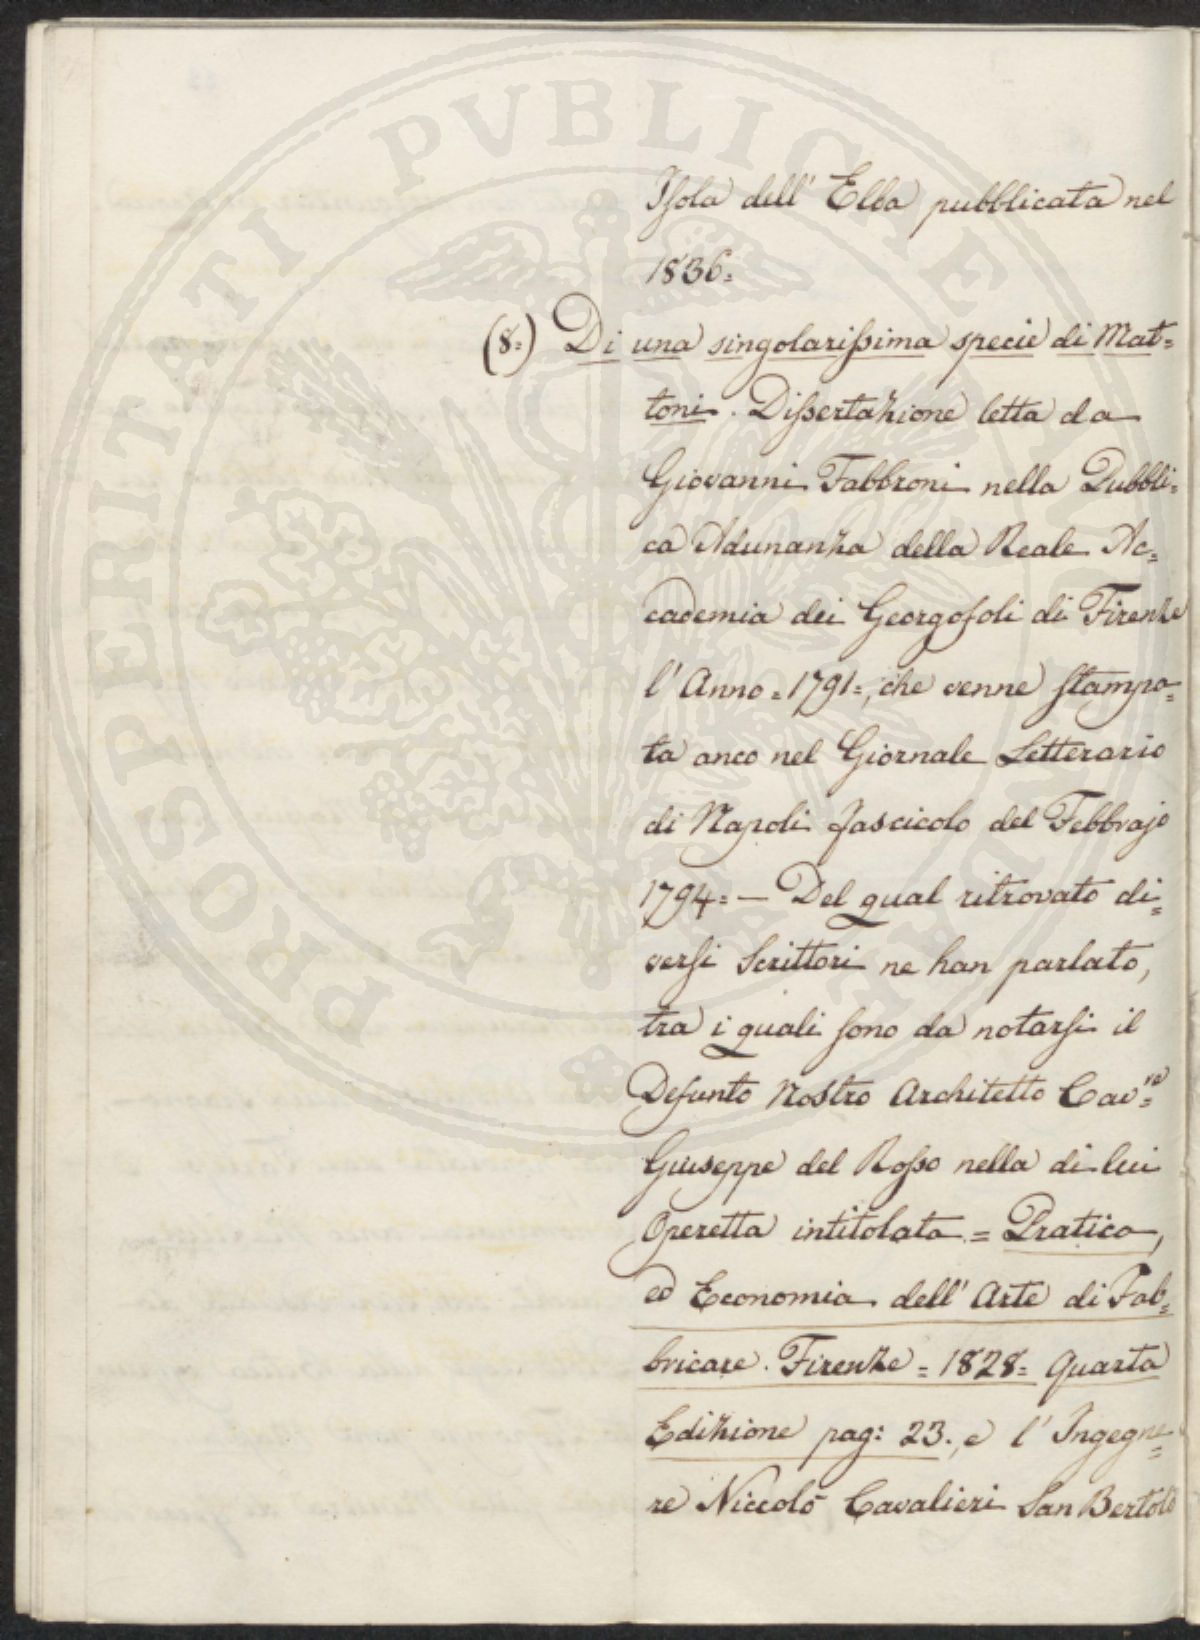 Isola dell' Elba pubblicata nel
1836=
(8=) Di una singolarissima specie di Mat=
toni. Dissertazione letta da
Giovanni Fabbroni nella Pubbli=
ca Adunanza della Reale Ac=
cademia dei Georgofoli di Firenze
l' Anno = 1791=, che venne stampa=
ta anco nel Giornale Letterario
di Napoli fascicolo del Febbrajo
1794= — Del qual ritrovato di=
versi Scrittori ne han parlato,
tra i quali sono da notarsi il
Defunto Nostro Architetto Cav=re
Giuseppe del Rosso nella di lui
Operetta intitolata = Pratica,
ed Economia dell' Arte di Fab=
bricare. Firenze = 1828= Quarta
Edizione pag: 23., e l' Ingegne=
re Niccolò Cavalieri San Bertolò
PROSPERITATI PVBLICAE AVGENDAE